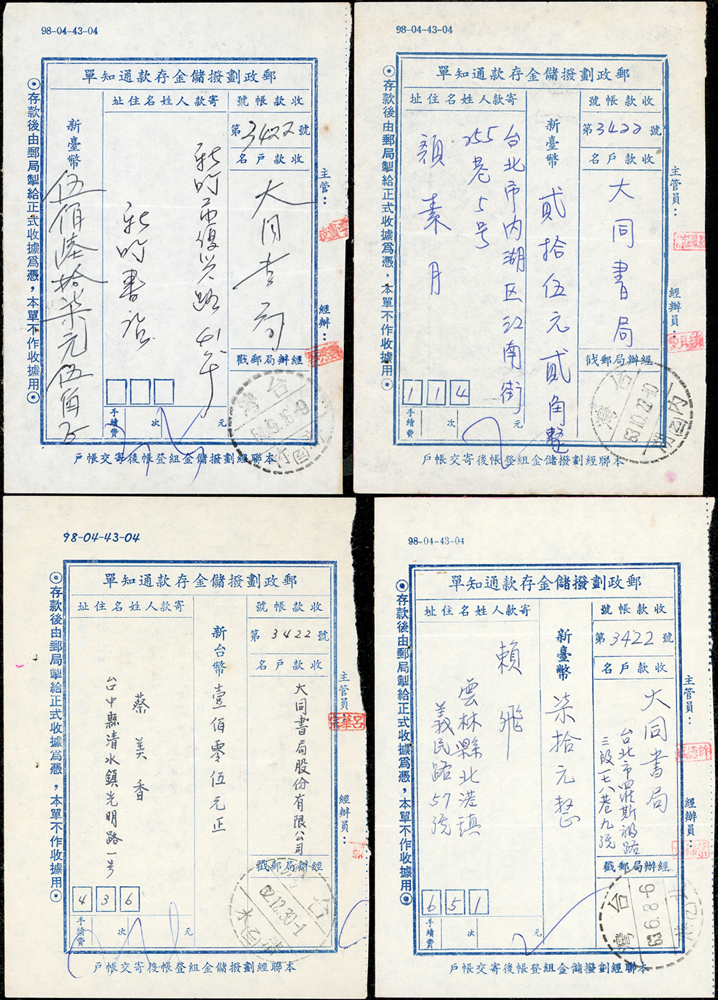 98-04-43-04
郵政劃撥儲金存款通知單
收款帳號
第3422號
收款戶名
大同書局
經辦局郵戳
寄款人姓名住址
新竹市復興路41號
新竹書店
新臺幣
伍佰陸拾柒元伍角正
手續費
次
元
◎存款後由郵局掣給正式收據為憑，本單不作收據用◎
主管：
經辦：
台灣
本聯經劃撥儲金組登帳後寄交帳戶
98-04-43-04
郵政劃撥儲金存款通知單
收款帳號
第3422號
收款戶名
大同書局
經辦局郵戳
新臺幣
貳拾伍元貳角整
寄款人姓名住址
台北市內湖区江南街
255巷5号
顏素月
114
手續費
次
元
◎存款後由郵局掣給正式收據為憑，本單不作收據用◎
主管員：
經辦員：
台灣
63.10.22-10
本聯經劃撥儲金組登帳後寄交帳戶
98-04-43-04
郵政劃撥儲金存款通知單
收款帳號
第3422號
收款戶名
大同書局股份有限公司
經辦局郵戳
新台幣
壹佰零伍元正
寄款人姓名住址
蔡美香
台中縣清水鎮光明路一号
436
手續費
次
元
◎存款後由郵局掣給正式收據為憑，本單不作收據用◎
主管員：
經辦員：
62.12.30-1
本聯經劃撥儲金組登帳後寄交帳戶
98-04-43-04
郵政劃撥儲金存款通知單
收款帳號
第3422號
收款戶名
大同書局
台北市羅斯福路
三段七八巷九號
經辦局郵戳
新臺幣
柒拾元整
寄款人姓名住址
賴飛
雲林縣北港鎮
義民路57號
651
手續費
次
元
◎存款後由郵局掣給正式收據為憑，本單不作收據用◎
主管員：
經辦員：
台灣
63.6.8-6
本聯經劃撥儲金組登帳後寄交帳戶